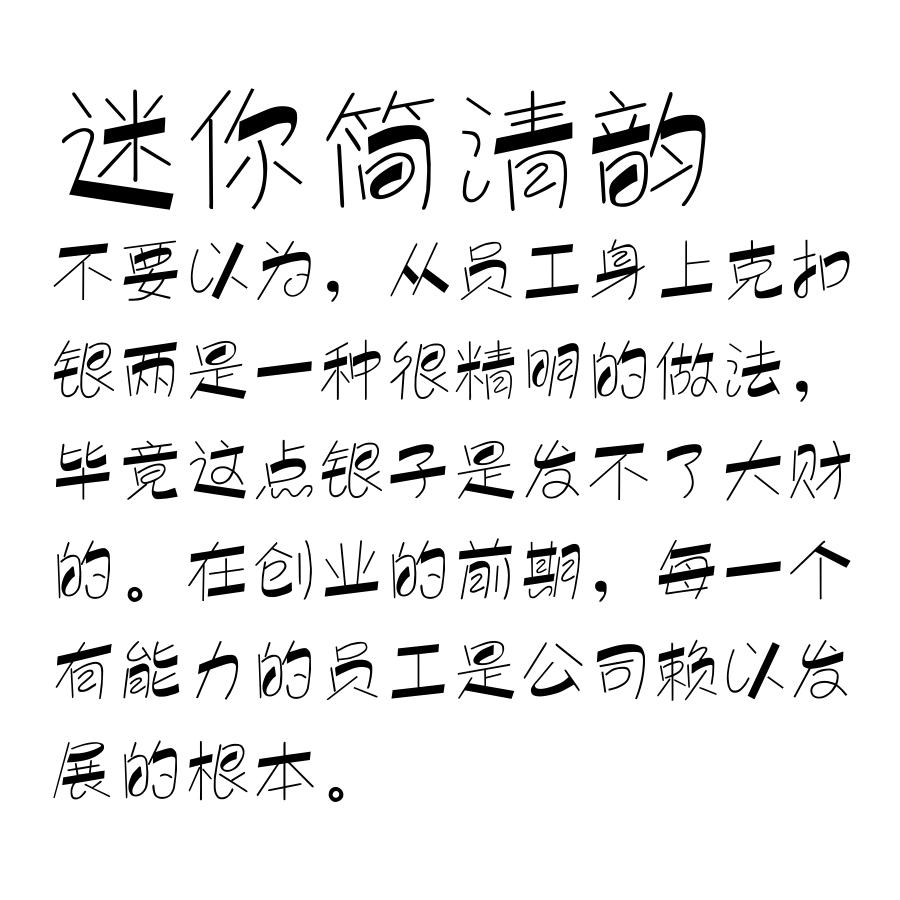 迷你简清韵
不要以为，从员工身上克扣
银两是一种很精明的做法，
毕竟这点银子是发不了大财
的。在创业的前期，每一个
有能力的员工是公司赖以发
展的根本。